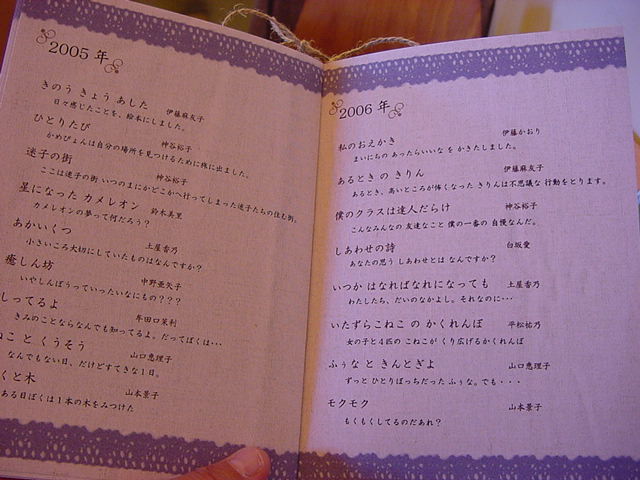 2005年
きのう きょう あした 伊藤麻友子
日々感じたことを、絵本にしました。
ひとりたび 神谷裕子
かめぴょんは自分の場所を見つけるために旅に出ました。
迷子の街 神谷裕子
ここは迷子の街 いつのまにかどこかへ行ってしまった迷子たちの住む街。
星になった カメレオン 鈴木美里
カメレオンの夢って何だろう？
あかいくつ 土屋香乃
小さいころ大切にしていたものはなんですか？
癒しん坊 中野亜矢子
いやしんぼうっていったいなにもの？？？
しってるよ 牟田口茉莉
きみのことならなんでも知ってるよ。だってぼくは…
ねこ と くうそう 山口恵理子
なんでもない日、だけどすてきな1日。
くと木 山本景子
ある日ぼくは1本の木をみつけた
2006年
私のおえかき 伊藤かおり
まいにちの あったらいいな を かきたしました。
あるとき の きりん 伊藤麻友子
あるとき、高いところが怖くなった きりんは不思議な 行動をとります。
僕のクラスは達人だらけ 神谷裕子
こんなみんなの 友達なこと 僕の一番の 自慢なんだ。
しあわせの詩 白坂愛
あなたの思う しあわせとは なんですか？
いつか はなればなれになっても 土屋香乃
わたしたち、だいのなかよし。それなのに・・・
いたずらこねこ の かくれんぼ 平松祐乃
女の子と4匹の こねこが くり広げるかくれんぼ
ふぅな と きんとぎよ 山口恵理子
ずっと ひとりぼっちだった ふぅな。でも・・・
モクモク 山本景子
もくもくしてるのだあれ？